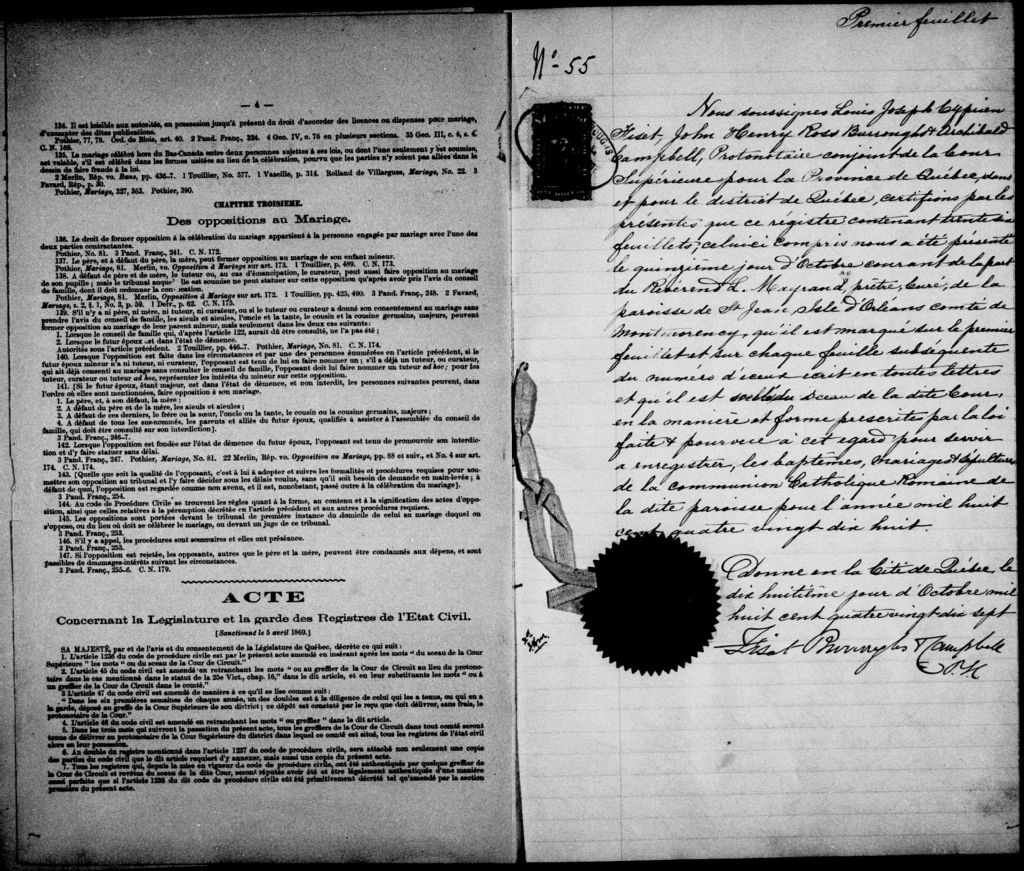 — 4 —
134. Il est loisible aux autorités, en possession jusqu'à présent du droit d'accorder des licences ou dispenses pour mariage,
d'exempter des dites publications.
Pothier, 77, 78. Ord. de Blois, art. 40. 2 Pand. Franç., 324. 4 Geo. IV, c. 76 en plusieurs sections. 35 Geo. III, c. 4, s. 4.
C. N. 169.
135. Le mariage célébré hors du Bas-Canada entre deux personnes sujettes à ses lois, ou dont l'une seulement y est soumise,
est valable, s'il est célébré dans les formes usitées au lieu de la célébration, pourvu que les parties n'y soient pas allées dans le
dessein de faire fraude à la loi.
2 Merlin, Rép. vo. Bans, pp. 436-7. 1 Touillier, No. 577. 1 Vaseille, p. 314. Rolland de Villargues, Mariage, No. 22. 3
Favard, Rép., p. 30.
Pothier, Mariage, 327, 363. Pothier, 390.
CHAPITRE TROISIEME.
Des oppositions au Mariage.
136. Le droit de former opposition à la célébration du mariage appartient à la personne engagée par mariage avec l'une des
deux parties contractantes.
Pothier, No. 81. 3 Pand. Franç., 241. C. N. 172.
137. Le père, et à défaut du père, la mère, peut former opposition au mariage de son enfant mineur.
Pothier, Mariage, 81. Merlin, vo. Opposition à Mariage sur art. 173. 1 Touillier, p. 489. C. N. 173.
138. A défaut de père et de mère, le tuteur ou, au cas d'émancipation, le curateur, peut aussi faire opposition au mariage
de son pupille; mais le tribunal auque' lle est soumise ne peut statuer sur cette opposition qu'après avoir pris l'avis du conseil
de famille, dont il doit ordonner la convocation.
Pothier, Mariage, 81. Merlin, Opposition à Mariage sur art. 172. 1 Touillier, pp. 425, 490. 3 Pand. Franç., 248. 2 Favard,
Mariage, s. 2, § 1, No. 3, p. 59. 1 Delv., p. 62. C. N. 175.
139. S'il n'y a ni père, ni mère, ni tuteur, ni curateur, ou si le tuteur ou curateur a donné son consentement au mariage sans
prendre l'avis du conseil de famille, les aïeuls et aïeules, l'oncle et la tante, le cousin et la cousine germains, majeurs, peuvent
former opposition au mariage de leur parent mineur, mais seulement dans les deux cas suivants:
1. Lorsque le conseil de famille qui, d'après l'article 122, aurait dû être consulté, ne l'a pas été;
2. Lorsque le futur époux est dans l'état de démence.
Autorités sous l'article précédent. 2 Touillier, pp. 446-7. Pothier, Mariage, No. 81. C. N. 174.
140. Lorsque l'opposition est faite dans les circonstances et par une des personnes énumérées en l'article précédent, si le
futur époux mineur n'a ni tuteur, ni curateur, l'opposant est tenu de lui en faire nommer un; s'il a déjà un tuteur, ou curateur,
qui ait déjà consenti au mariage sans consulter le conseil de famille, l'opposant doit lui faire nommer un tuteur ad hoc; pour les
tuteur, curateur ou tuteur ad hoc, représenter les intérêts du mineur sur cette opposition.
141. [Si le futur époux, étant majeur, est dans l'état de démence, et non interdit, les personnes suivantes peuvent, dans
l'ordre où elles sont mentionnées, faire opposition à son mariage.
1. Le père, et à son défaut, la mère;
2. A défaut du père et de la mère, les aïeuls et aïeules;
3. A défaut de ces derniers, le frère ou la sœur, l'oncle ou la tante, le cousin ou la cousine germains, majeurs;
4. A défaut de tous les sus-nommés, les parents et alliés du futur époux, qualifiés à assister à l'assemblée du conseil de
famille, qui doit être consulté sur son interdiction].
3 Pand. Franç., 246-7.
142. Lorsque l'opposition est fondée sur l'état de démence du futur époux, l'opposant est tenu de promouvoir son interdic-
tion et d'y faire statuer sans délai.
3 Pand. Franç., 247. Pothier, Mariage, No. 81. 22 Merlin, Rép. vo. Opposition au Mariage, pp. 88 et suiv., et No. 4 sur art.
174. C. N. 174.
143. [Quelle que soit la qualité de l'opposant, c'est à lui à adopter et suivre les formalités et procédures requises pour sou-
mettre son opposition au tribunal et l'y faire décider sous les délais voulus, sans qu'il soit besoin de demande en main-levée; à
défaut de quoi, l'opposition est regardée comme non avenu, et il est, nonobstant, passé outre à la célébration du mariage].
3 Pand. Franç., 254.
144. Au code de Procédure Civile se trouvent les règles quant à la forme, au contenu et à la signification des actes d'oppo-
sition, ainsi que celles relatives à la péremption décrétée en l'article précédent et aux autres procédures requises.
145. Les oppositions sont portées devant le tribunal de première instance du domicile de celui au mariage duquel on
s'oppose, ou du lieu où doit se célébrer le mariage, ou devant un juge de ce tribunal.
3 Pand. Franç., 253.
146. S'il y a appel, les procédures sont sommaires et elles ont préséance.
3 Pand. Franç., 253.
147. Si l'opposition est rejetée, les opposants, autres que le père et la mère, peuvent être condamnés aux dépens, et sont
passibles de dommages-intérêts suivant les circonstances.
3 Pand. Franç., 255-6. C. N. 179.
ACTE
Concernant la Législature et la garde des Registres de l'Etat Civil.
[Sanctionné le 5 avril 1869.]
SA MAJESTÉ, par et de l'avis et du consentement de la Législature de Québec, décrète ce qui suit:
1. L'article 1236 du code de procédure civile est par le présent acte amendé en insérant après les mots "du sceau de la Cour
Supérieure" les mots "ou du sceau de la Cour de Circuit."
2. L'article 45 du code civil est amendé en retranchant les mots "ou au greffier de la Cour de Circuit au lieu du protono-
taire dans le cas mentionné dans le statut de la 25e Vict., chap. 16," dans le dit article, et en leur substituants les mots "ou à
un greffier de la Cour de Circuit dans le comté."
3 L'article 47 du code civil est amendé de manière à ce qu'il se lise comme suit:
"Dans les six premières semaines de chaque année, un des doubles est à la diligence de celui qui les a tenus, ou qui en a
la garde, déposé au greffe de la Cour Supérieure de son district; ce dépôt est constaté par le reçu que doit délivrer, sans frais, le
protonotaire de la Cour."
4. L'article 48 du code civil est amendé en retranchant les mots "ou greffier" dans le dit article.
5. Dans les trois mois qui suivront la passation du présent acte, tous les greffiers de la Cour de Circuit dans tout comté seront
tenus de délivrer au protonotaire de la Cour Supérieure du district dans lequel ce comté est situé, tous les registres de l'état civil
alors en leur possession.
6. Au double du registre mentionné dans l'article 1237 du code de procédure civile, sera attaché non seulement une copie
des parties du code civil que le dit article requiert d'y annexer, mais aussi une copie du présent acte.
7. Tous les registres qui, depuis la mise en vigueur du code de procédure civile, ont été authentiqués par quelque greffier de
la Cour de Circuit et revêtus du sceau de la dite Cour, seront réputés avoir été et être légalement authentiqués d'une manière
aussi parfaite que si l'article 1236 du dit code de procédure civile eût été primitivement décrété tel qu'amendé par la section
première du présent acte.
Premier feuillet
No. 55
Nous soussignés Louis Joseph Cyprien
Fiset, John Henry Ross Burroughs & Archibald
Campbell, Protonotaire conjoint de la Cour
Supérieure pour la Province de Québec, dans
et pour le district de Québec, certifions par les
présentes que ce régistre contenant trente six
feuillets, celui ci compris nous a été présenté
le quinzième jour d'Octobre courant de la part
du Révérend L. Mayrand, prêtre, Curé, de la
paroisse de St. Jean, Isle d'Orléans comté de
Montmorency, qu'il est marqué sur le premier
feuillet et sur chaque feuille subséquente
du numéro d'iceux écrit en toutes lettres
et qu'il est scellé du Sceau de la dite Cour,
en la manière et forme prescrites par la loi
faite & pourvue à cet egard pour servir
a enregistrer, les baptêmes, mariages & sépultures
de la communion Catholique Romaine de
la dite paroisse pour l'année mil huit
cent quatre vingt dix huit.
Donné en la Cité de Québec, le
dix huitième jour d'Octobre mil
huit cent quatre vingt dix sept
Fiset Burroughs & Campbell
P.S.C